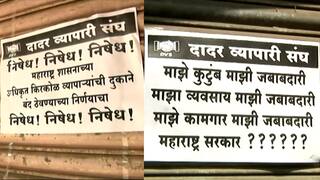 दादर व्यापारी संघ
निषेध! निषेध! निषेध!
महाराष्ट्र शासनाच्या
अधिकृत किरकोळ व्यापाऱ्यांची दुकाने
बंद ठेवण्याच्या निर्णयाचा
निषेध! निषेध! निषेध!
DVS
दादर व्यापारी संघ
माझे कुटुंब माझी जबाबदारी
माझा व्यवसाय माझी जबाबदारी
माझे कामगार माझी जबाबदारी
महाराष्ट्र सरकार ??????